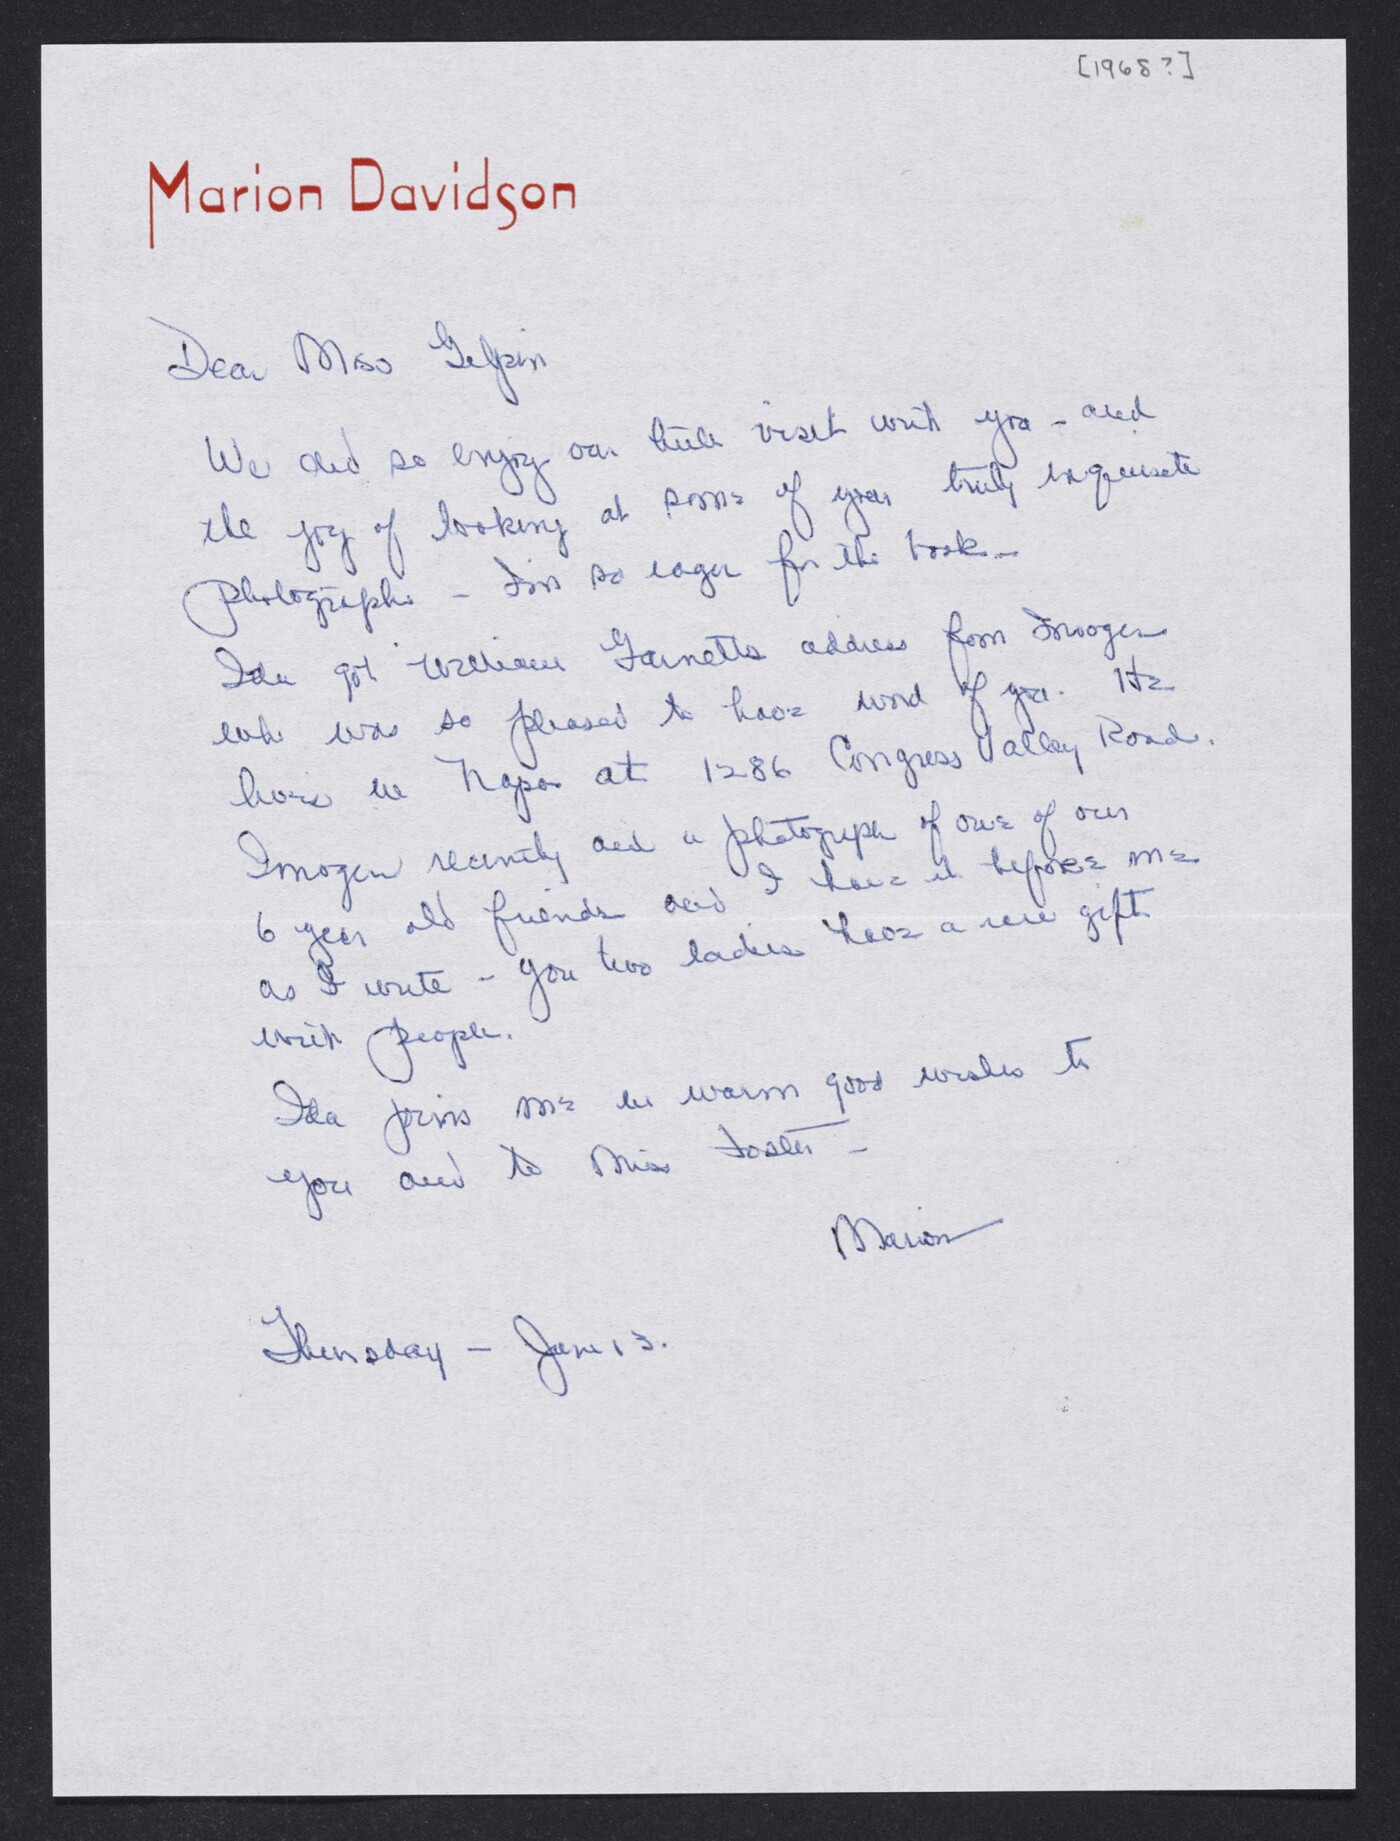 [1968?]
Marion Davidson
Dear Miss Gelpin
We did so enjoy our little visit with you - and
the joy of looking at some of your truly exquisite
photographs - I'm so eager for the book -
Ida got William Garnetts address from Imogen
who was so pleased to have word of you. He
lives in Napa at 1286 Congress Valley Road.
Imogen recently did a photograph of one of our
6 year old friends and I have it before me
as I write - you two ladies have a rare gift
with people.
Ida joins me in warm good wishes to
you and to Miss Foster -
Marion
Thursday - June 13.